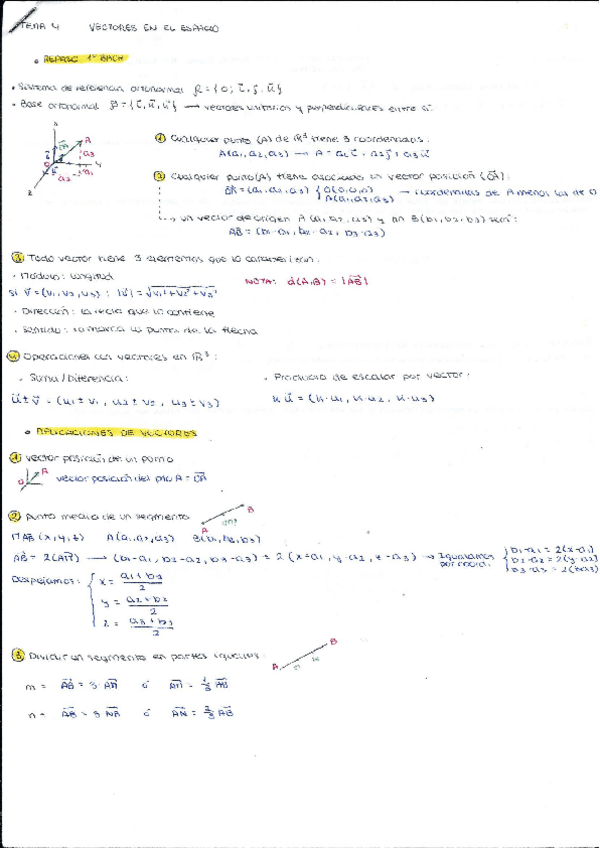 TEMA 4 VECTORES EN EL ESPACIO
• REPASO 1º BACH
• Sistema de referencia ortonormal R = {0; i, j, u}
• Base ortonormal B = {i, u, u} → vectores unitarios y perpendiculares entre sí
① Cualquier punto (A) de ℝ³ tiene 3 coordenadas:
A(a₁, a₂, a₃) → A = a₁i + a₂j + a₃u
② Cualquier punto (A) tiene asociado un vector posición (OA):
OA = (a₁, a₂, a₃) { O(0,0,0) A(a₁, a₂, a₃) → coordenadas de A menos las de O
un vector de origen A(a₁, a₂, a₃) y en B(b₁, b₂, b₃) será:
AB = (b₁-a₁, b₂-a₂, b₃-a₃)
③ Todo vector tiene 3 elementos que lo caracterizan:
• Módulo: longitud
NOTA: d(A,B) = |AB|
si v = (v₁, v₂, v₃) : |v| = √v₁²+v₂²+v₃²
• Dirección: la recta que lo contiene
• Sentido: lo marca la punta de la flecha
④ Operaciones con vectores en ℝ³:
• Suma/Diferencia:
• Producto de escalar por vector:
u ± v = (u₁ ± v₁, u₂ ± v₂, u₃ ± v₃)
k u = (k·u₁, k·u₂, k·u₃)
• APLICACIONES DE VECTORES
① vector posición de un punto
vector posición del pto A = OA
② punto medio de un segmento
MAB (x, y, z) A(a₁, a₂, a₃) B(b₁, b₂, b₃)
AB = 2(AM) → (b₁-a₁, b₂-a₂, b₃-a₃) = 2(x-a₁, y-a₂, z-a₃) → Igualamos por coord. { b₁-a₁ = 2(x-a₁)
b₂-a₂ = 2(y-a₂)
b₃-a₃ = 2(z-a₃)
Despejamos: { x = a₁+b₁/2
y = a₂+b₂/2
z = a₃+b₃/2
③ Dividir un segmento en partes iguales:
m = AB = 3·AM ó AM = 1/3 AB
n = AB = 3 NB ó AN = 2/3 AB